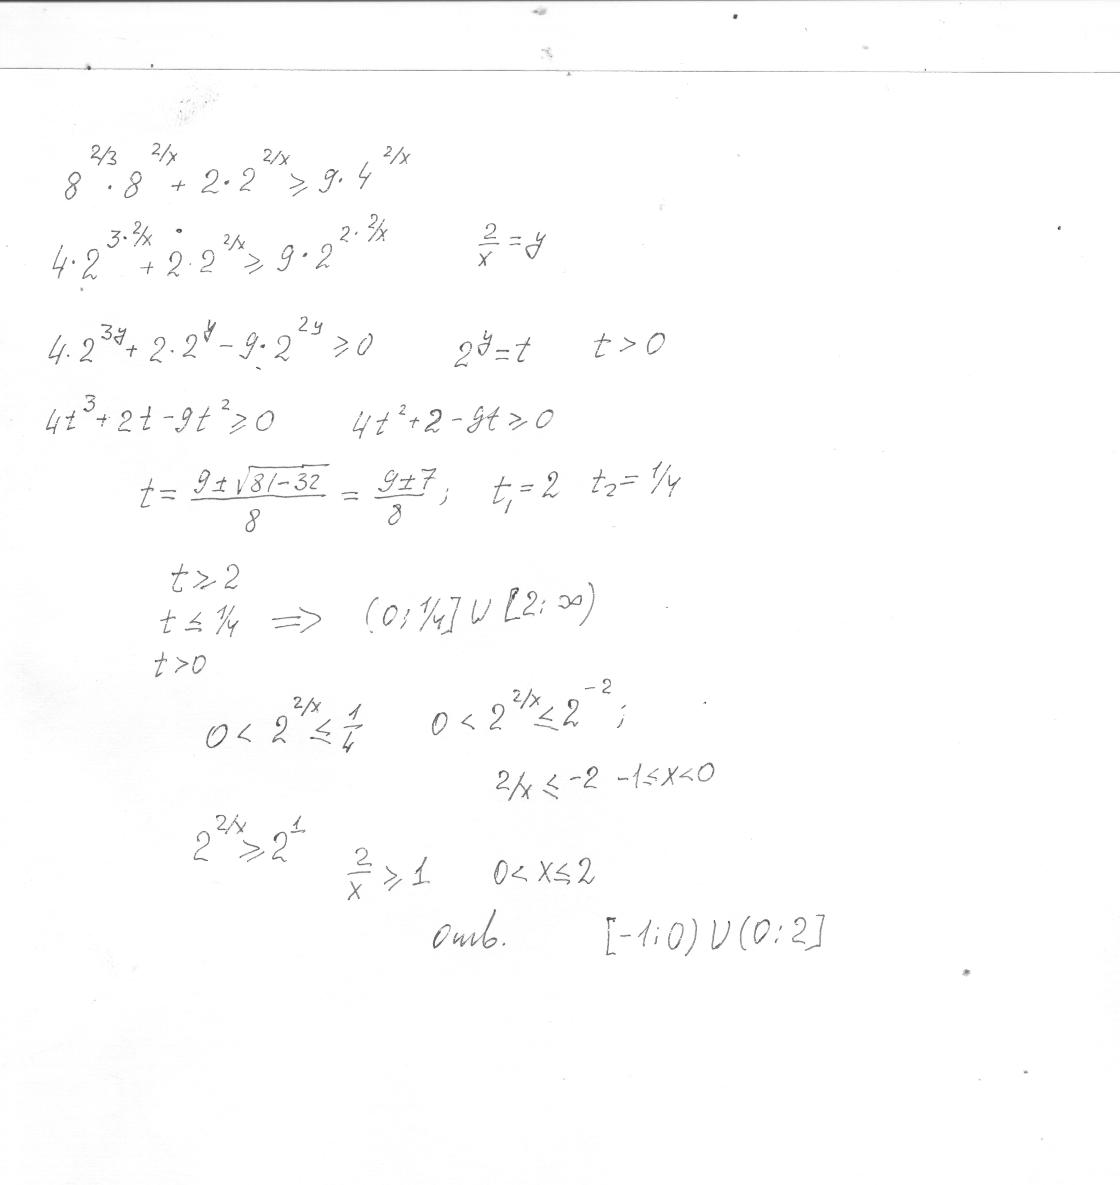 8^{2/3} · 8^{2/x} + 2 · 2^{2/x} ⩾ 9 · 4^{2/x}
4 · 2^{3 · 2/x} + 2 · 2^{2/x} ⩾ 9 · 2^{2 · 2/x}   2/x = y
4 · 2^{3y} + 2 · 2^{y} − 9 · 2^{2y} ⩾ 0   2^{y} = t   t > 0
4t^3 + 2t − 9t^2 ⩾ 0   4t^2 + 2 − 9t ⩾ 0
t = (9 ± √(81−32))/8 = (9 ± 7)/8 ;   t₁ = 2   t₂ = 1/4
t ⩾ 2
t ≤ 1/4 ⇒ (0; 1/4] ∪ [2; ∞)
t > 0
0 < 2^{2/x} ≤ 1/4   0 < 2^{2/x} ≤ 2^{−2} ;
2/x ≤ −2   −1 ≤ x < 0
2^{2/x} ⩾ 2^{1}
2/x ⩾ 1   0 < x ≤ 2
Отв.   [−1; 0) ∪ (0; 2]